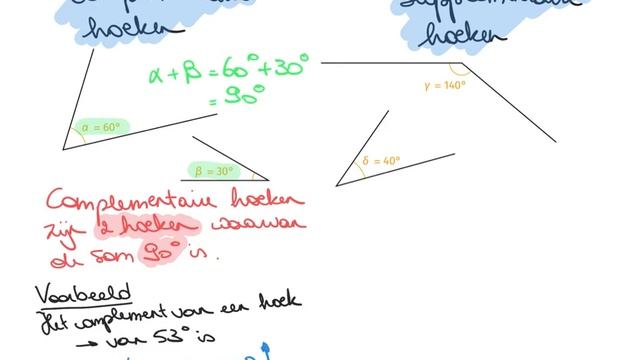 hoeken
hoeken
α+β = 60°+30°
= 90°
α = 60°
β = 30°
γ = 140°
δ = 40°
Complementaire hoeken
zijn 2 hoeken waarvan
de som 90° is.
Voorbeeld
Het complement van een hoek
→ van 53° is